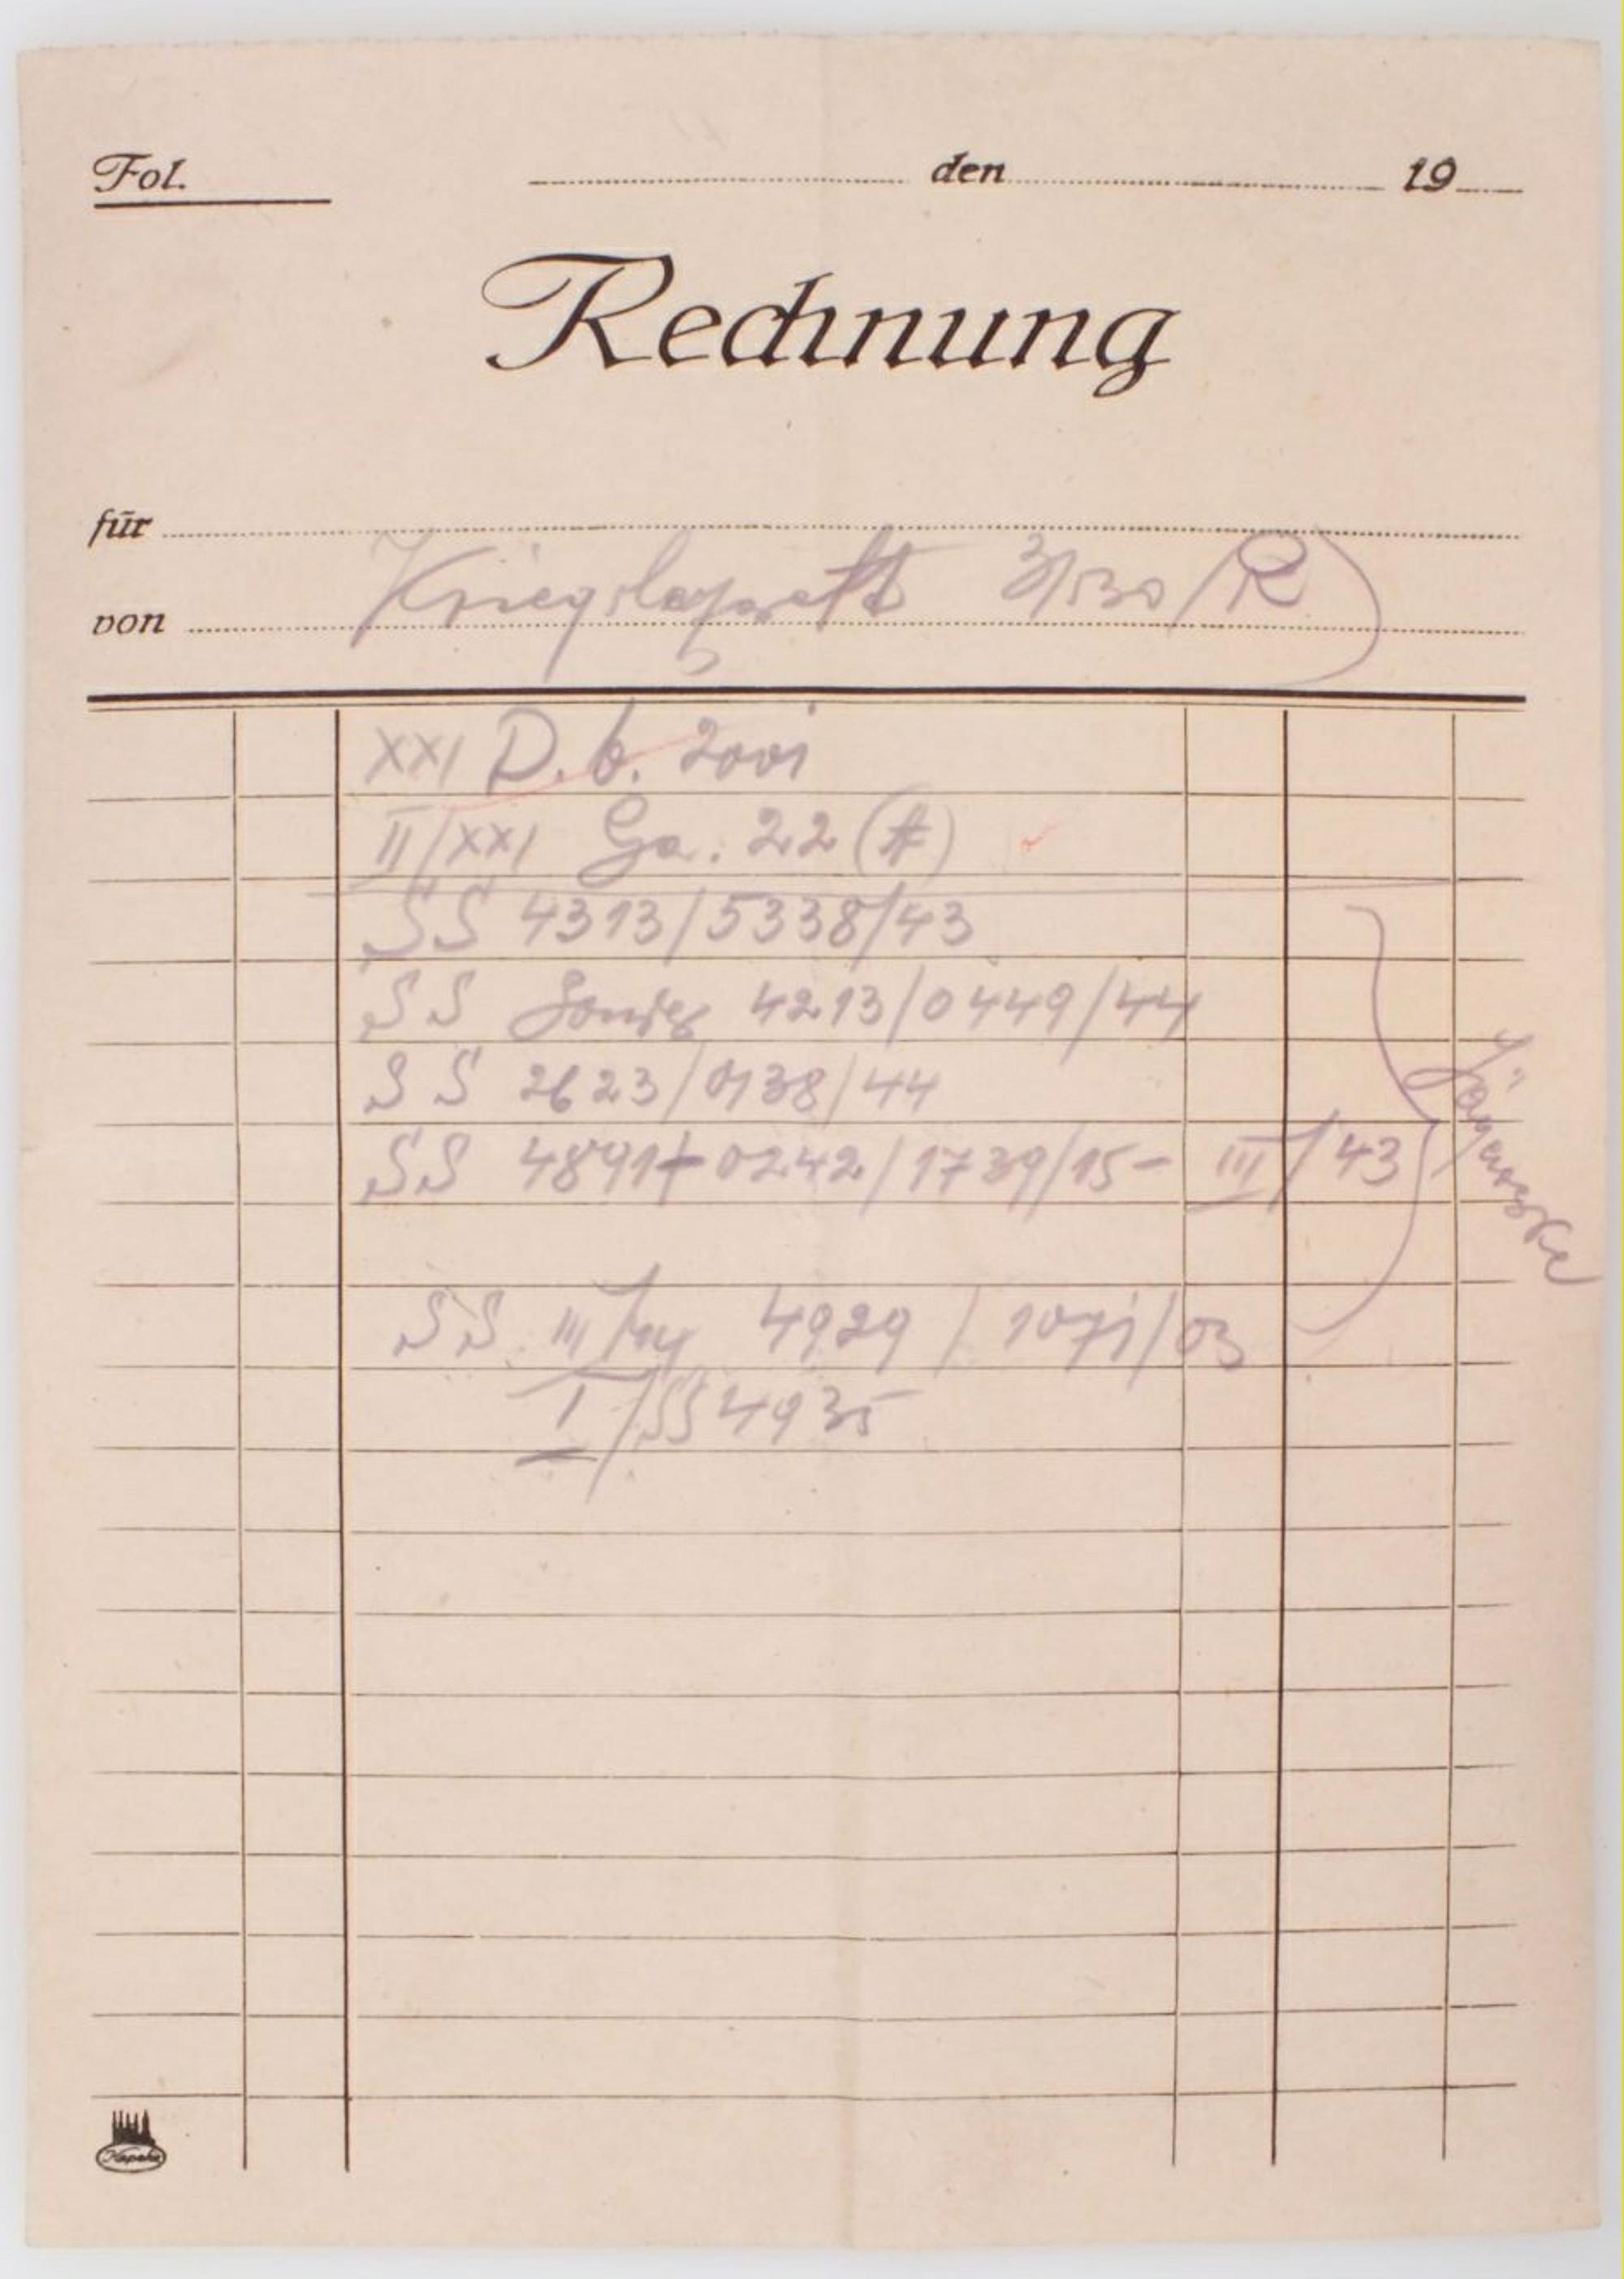 Fol. den 19
Rechnung
für
Kriegslazarett 3/530 (R)
von
XXI D.b. 2001
II/XXI Ga. 22 (A)
SS 4313/5338/43
SS Sonder 4213/0449/44
SS 2623/0138/44
SS 4891+0242/1739/15- III/43
SS III/44 4929 / 1071/03
I/SS 4935